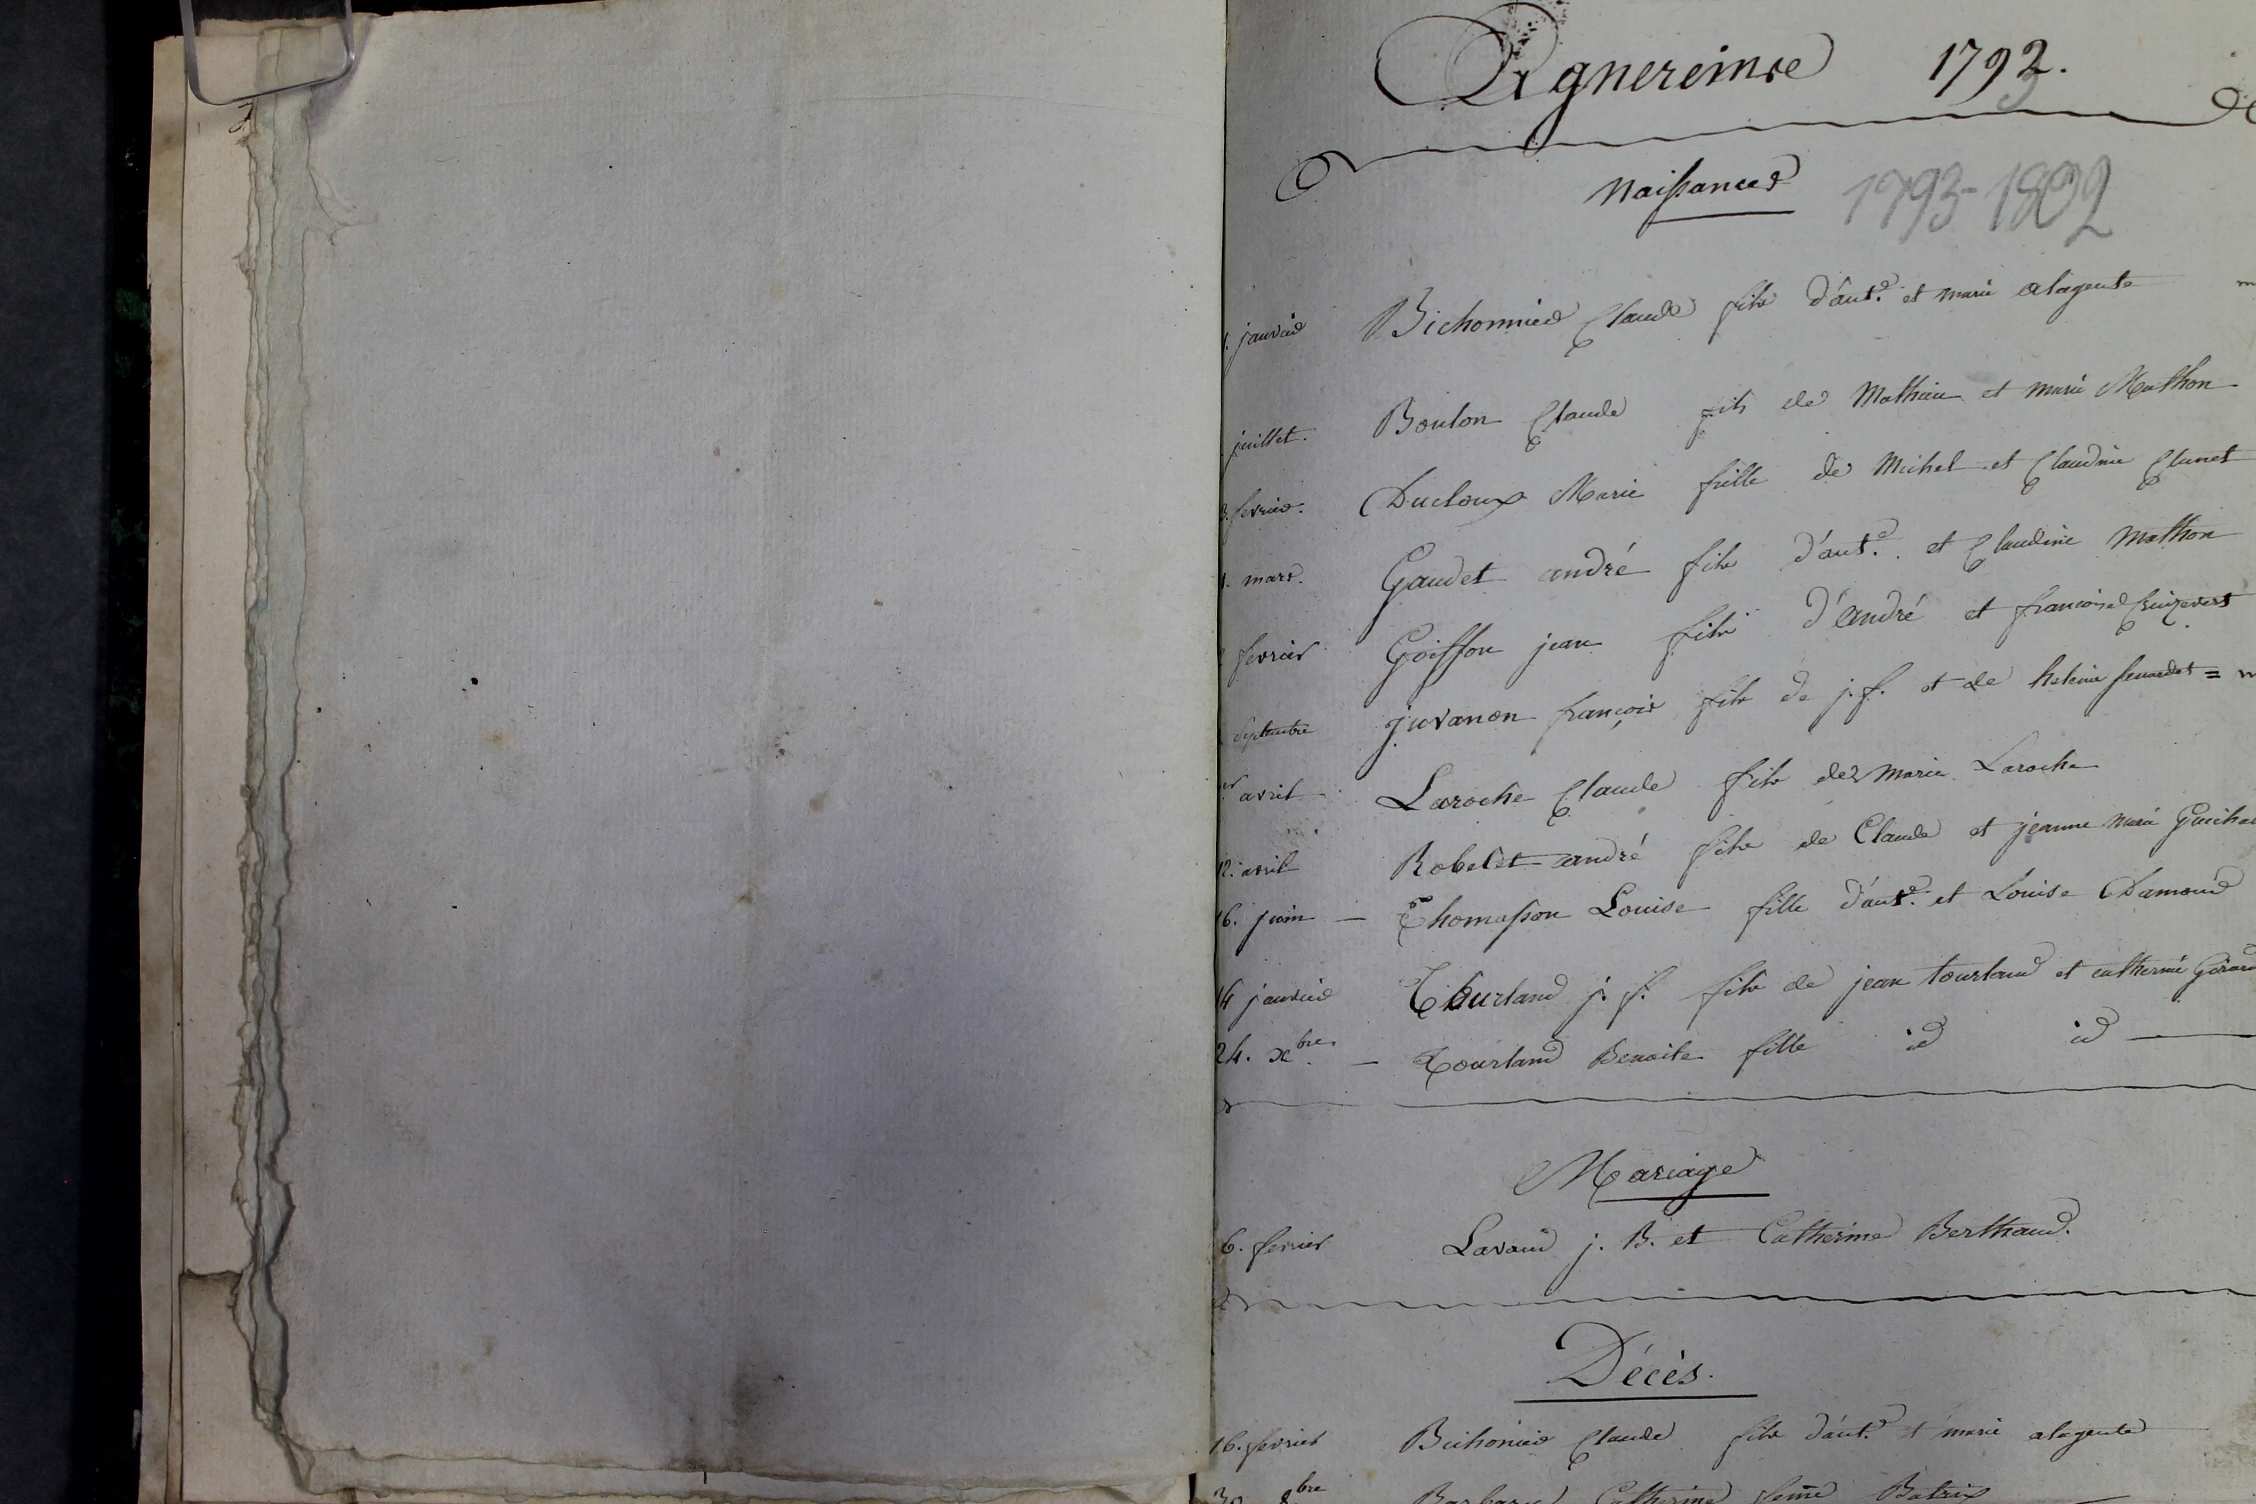 Agnereinse 1793.
Naissances 1793-1802
janvier Bichonnier Claude fils d'ant.e et marie alagente
juillet. Boulon Claude fils de Mathieu et marie Mathon
fevrier. Ducloux Marie fille de Michel et Claudine Clunet
mars. Gaudet andré fils d'ant.e et Claudine Mathon
fevrier Goiffon jean fils d'andré et francoise
Septembre juvanon françois fils de j. f. et de helenie
er avril Laroche Claude fils de Marie Laroche
12. avril Robelet andré fils de Claude et jeanne marie
16. juin — Thomasson Louise fille d'ant.e et Louise Damoud
14 janvier Thourland j. f. fils de jean tourland et catherine Girard
24. xbre. — Tourland Benoite fille id id —
Mariage
6. fevrier Lavaud j. B. et Catherine Berthaud.
Décès.
16. fevrier Bichonier Claude fils d'ant.e et marie alagente
30 8bre Catherine femme Batrix